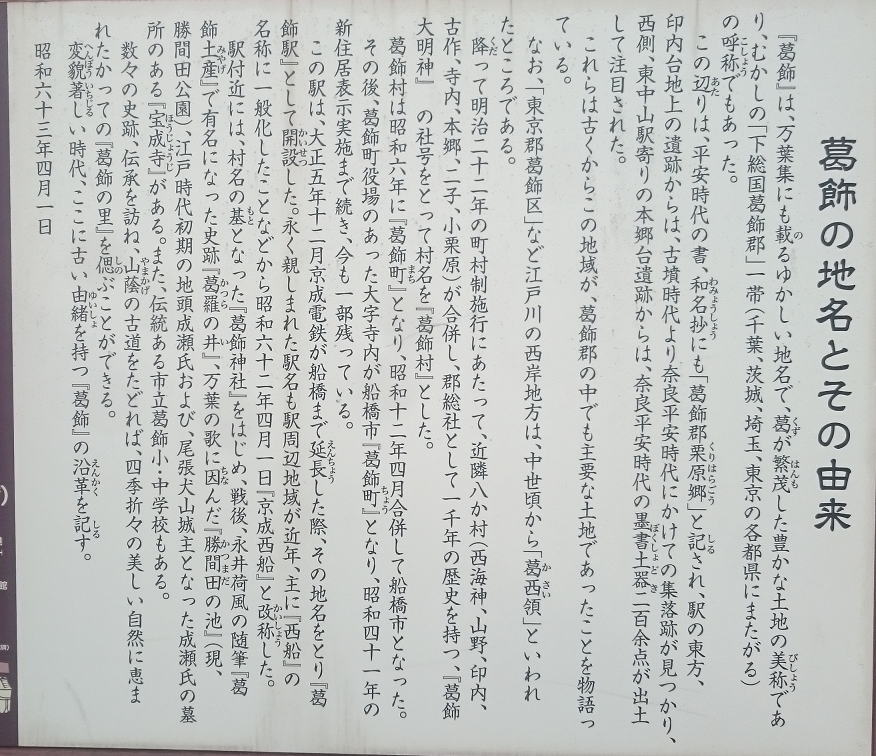 葛飾の地名とその由来
『葛飾』は、万葉集にも載るゆかしい地名で、葛が繁茂した豊かな土地の美称であ
り、むかしの「下総国葛飾郡」一帯(千葉、茨城、埼玉、東京の各都県にまたがる)
の呼称でもあった。
この辺りは、平安時代の書、和名抄にも「葛飾郡栗原郷」と記され、駅の東方、
印内台地上の遺跡からは、古墳時代より奈良平安時代にかけての集落跡が見つかり、
西側、東中山駅寄りの本郷台遺跡からは、奈良平安時代の墨書土器二百余点が出土
して注目された。
これらは古くからこの地域が、葛飾郡の中でも主要な土地であったことを物語っ
ている。
なお、「東京都葛飾区」など江戸川の西岸地方は、中世頃から「葛西領」といわれ
たところである。
降って明治二十二年の町村制施行にあたって、近隣八か村(西海神、山野、印内、
古作、寺内、本郷、二子、小栗原)が合併し、郡総社として一千年の歴史を持つ、『葛飾
大明神』の社号をとって村名を『葛飾村』とした。
葛飾村は昭和六年に『葛飾町』となり、昭和十二年四月合併して船橋市となった。
その後、葛飾町役場のあった大字寺内が船橋市『葛飾町』となり、昭和四十一年の
新住居表示実施まで続き、今も一部残っている。
この駅は、大正五年十二月京成電鉄が船橋まで延長した際、その地名をとり『葛
飾駅』として開設した。永く親しまれた駅名も駅周辺地域が近年、主に『西船』の
名称に一般化したことなどから昭和六十二年四月一日『京成西船』と改称した。
駅付近には、村名の基となった『葛飾神社』をはじめ、戦後、永井荷風の随筆『葛
飾土産』で有名になった史跡『葛羅の井』、万葉の歌に因んだ『勝間田の池』(現、
勝間田公園)、江戸時代初期の地頭成瀬氏および、尾張犬山城主となった成瀬氏の墓
所のある『宝成寺』がある。また、伝統ある市立葛飾小・中学校もある。
数々の史跡、伝承を訪ね、山蔭の古道をたどれば、四季折々の美しい自然に恵ま
れたかつての『葛飾の里』を偲ぶことができる。
変貌著しい時代、ここに古い由緒を持つ『葛飾』の沿革を記す。
昭和六十三年四月一日